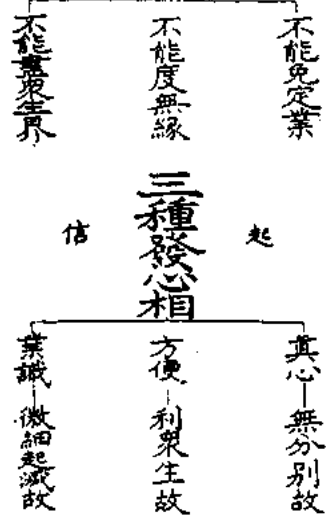 不能免定業
不能度無緣
不能盡衆生界
起信
三種發心相
真心—無分別故
方便—利衆生故
業識—微細起滅故